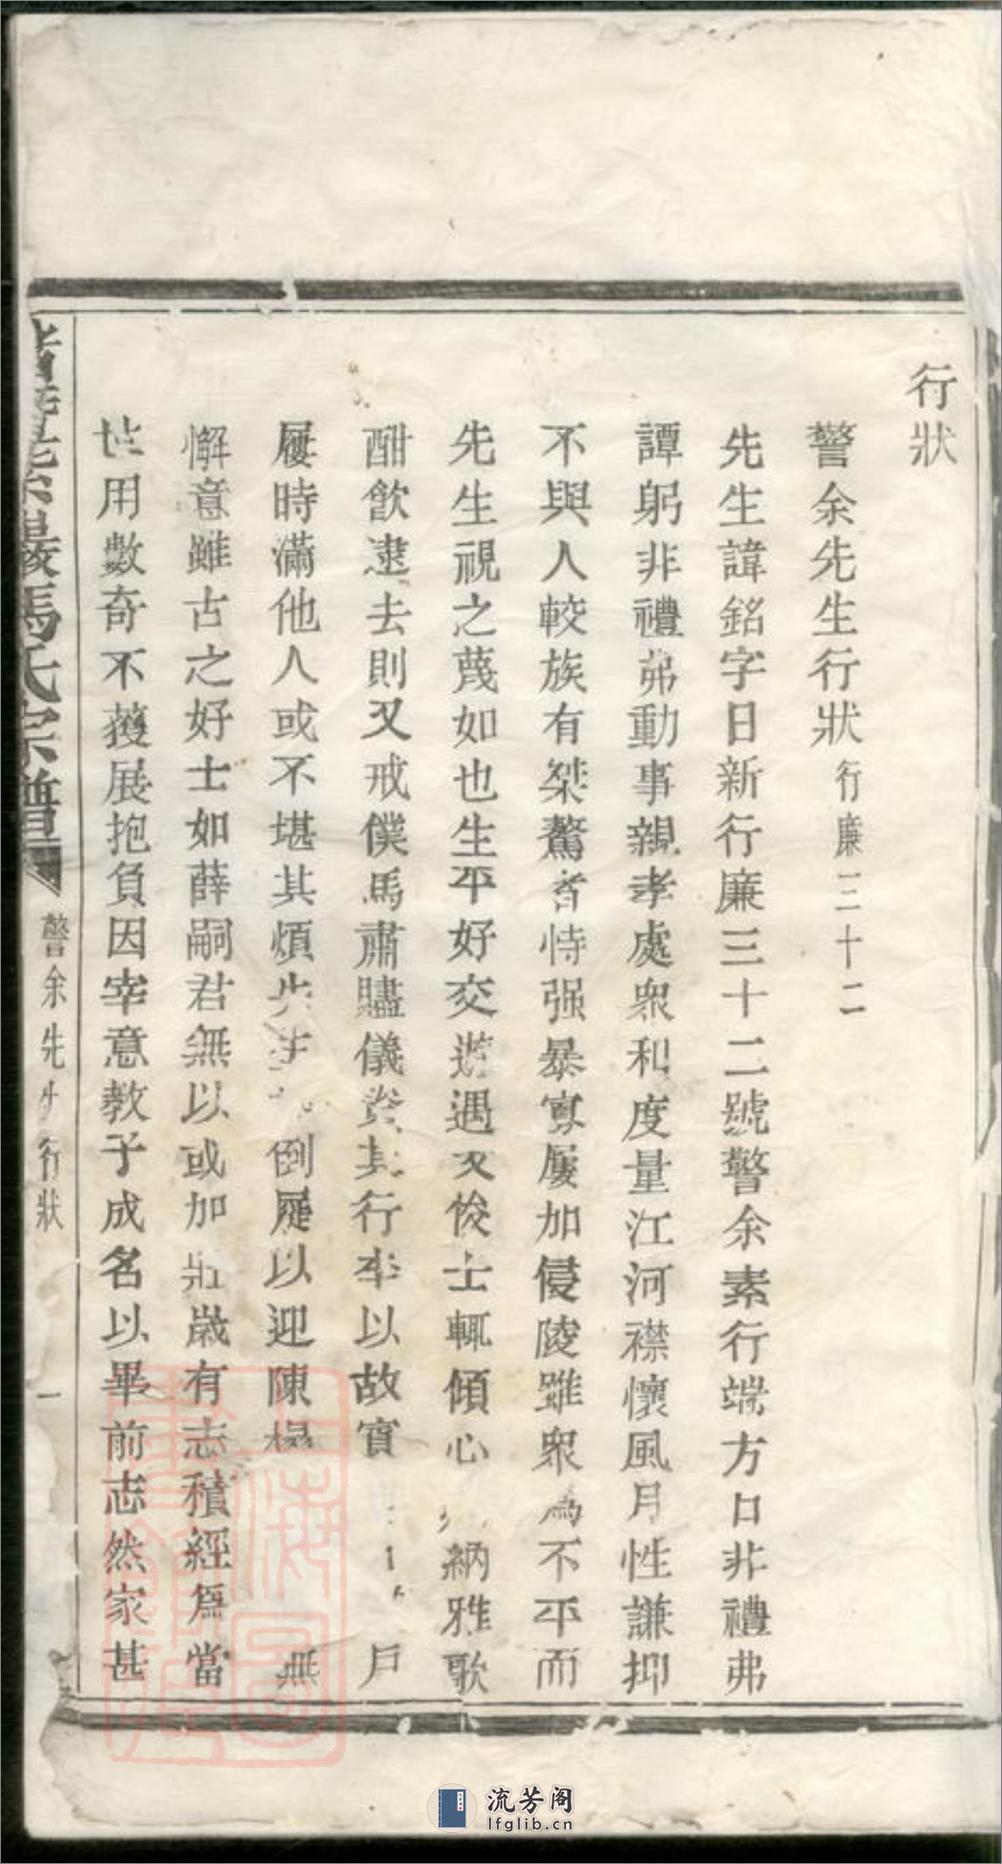 行狀
警余先生行狀 行廉三十二
先生諱銘字日新行廉三十二號警余素行端方口非禮弗
譚躬非禮弗動事親孝處衆和度量江河襟懷風月性謙抑
不與人較族有桀驁者恃强暴寡屢加侵陵雖衆為不平而
先生視之蔑如也生平好交遊遇文俊士輒傾心納雅歌
酣飲逮去則又戒僕馬肅贐儀資其行李以故賓戶
屨時滿他人或不堪其煩先生倒屣以迎陳楊無
懈意雖古之好士如薛嗣君無以或加壯歲有志積經爲當
世用數奇不獲展抱負因宰意教子成名以畢前志然家甚
馬氏宗譜
警余先生行狀
一
流芳阁
lfglib.cn